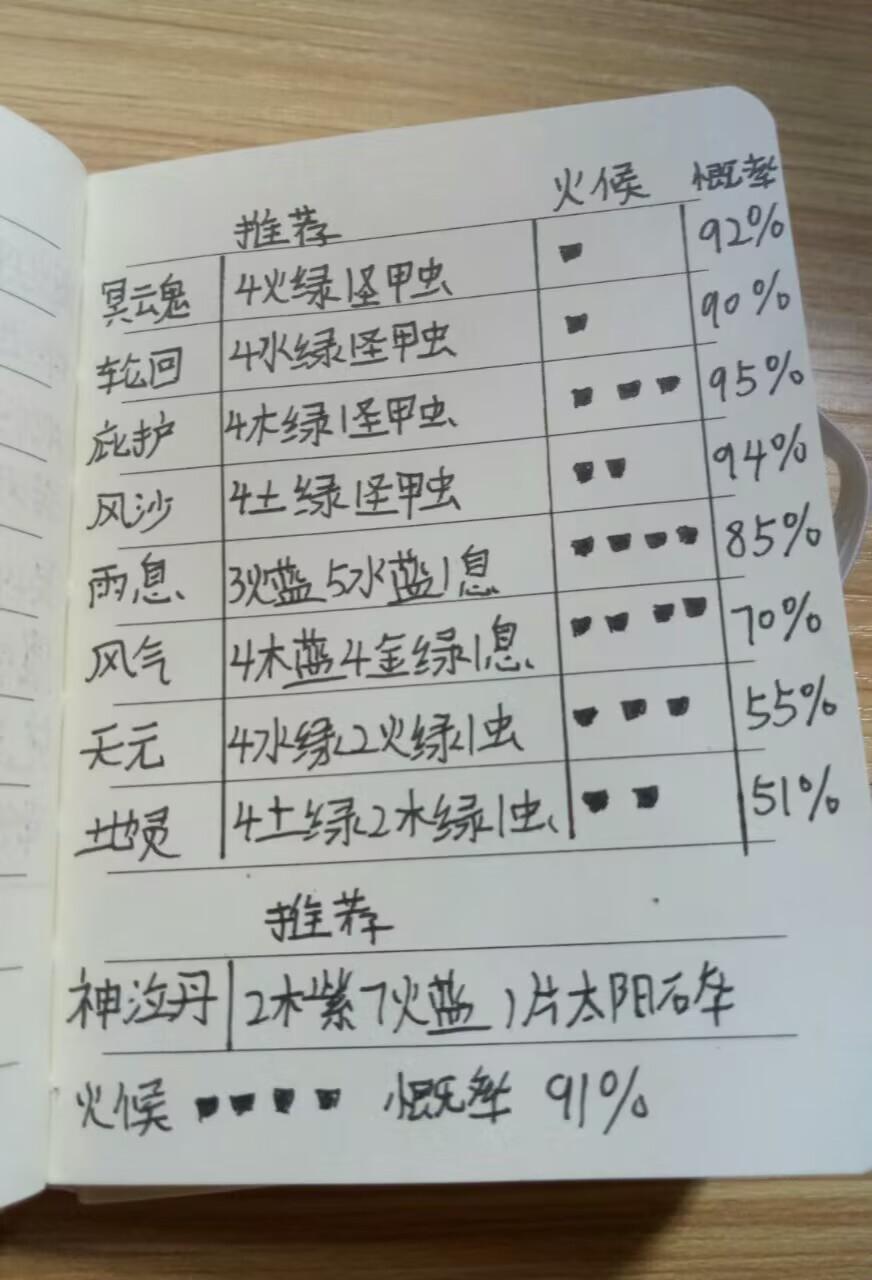 推荐 火候 概率
冥云鬼 4火绿1怪甲虫 92%
轮回 4水绿1怪甲虫 90%
庇护 4木绿1怪甲虫 95%
风沙 4土绿1怪甲虫 94%
雨息 3火蓝5水蓝1息 85%
风气 4木蓝4金绿1息 70%
天元 4水绿2火绿1虫 55%
地灵 4土绿2木绿1虫 51%
推荐
神泣丹 2木紫7火蓝1片太阳石
火候 概率 91%